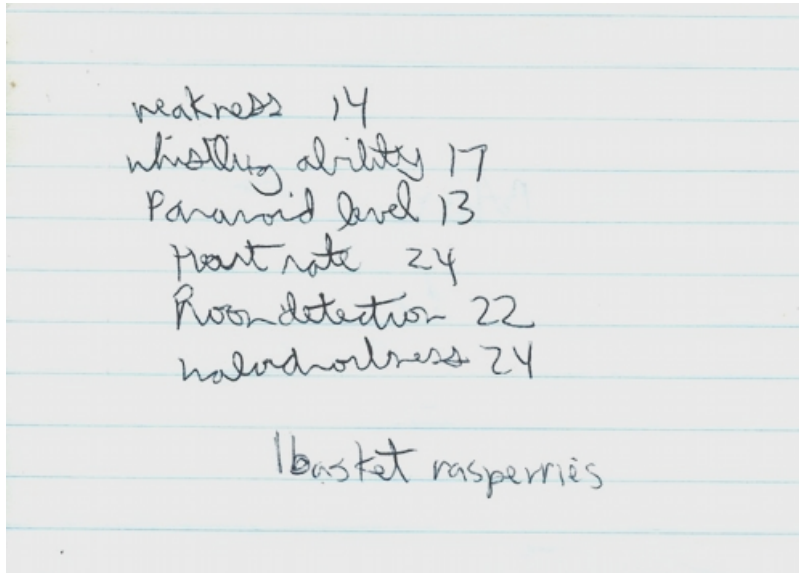 weakness 14
whistling ability 17
Paranoid level 13
Heart rate 24
detection 22
24
1 basket rasperries